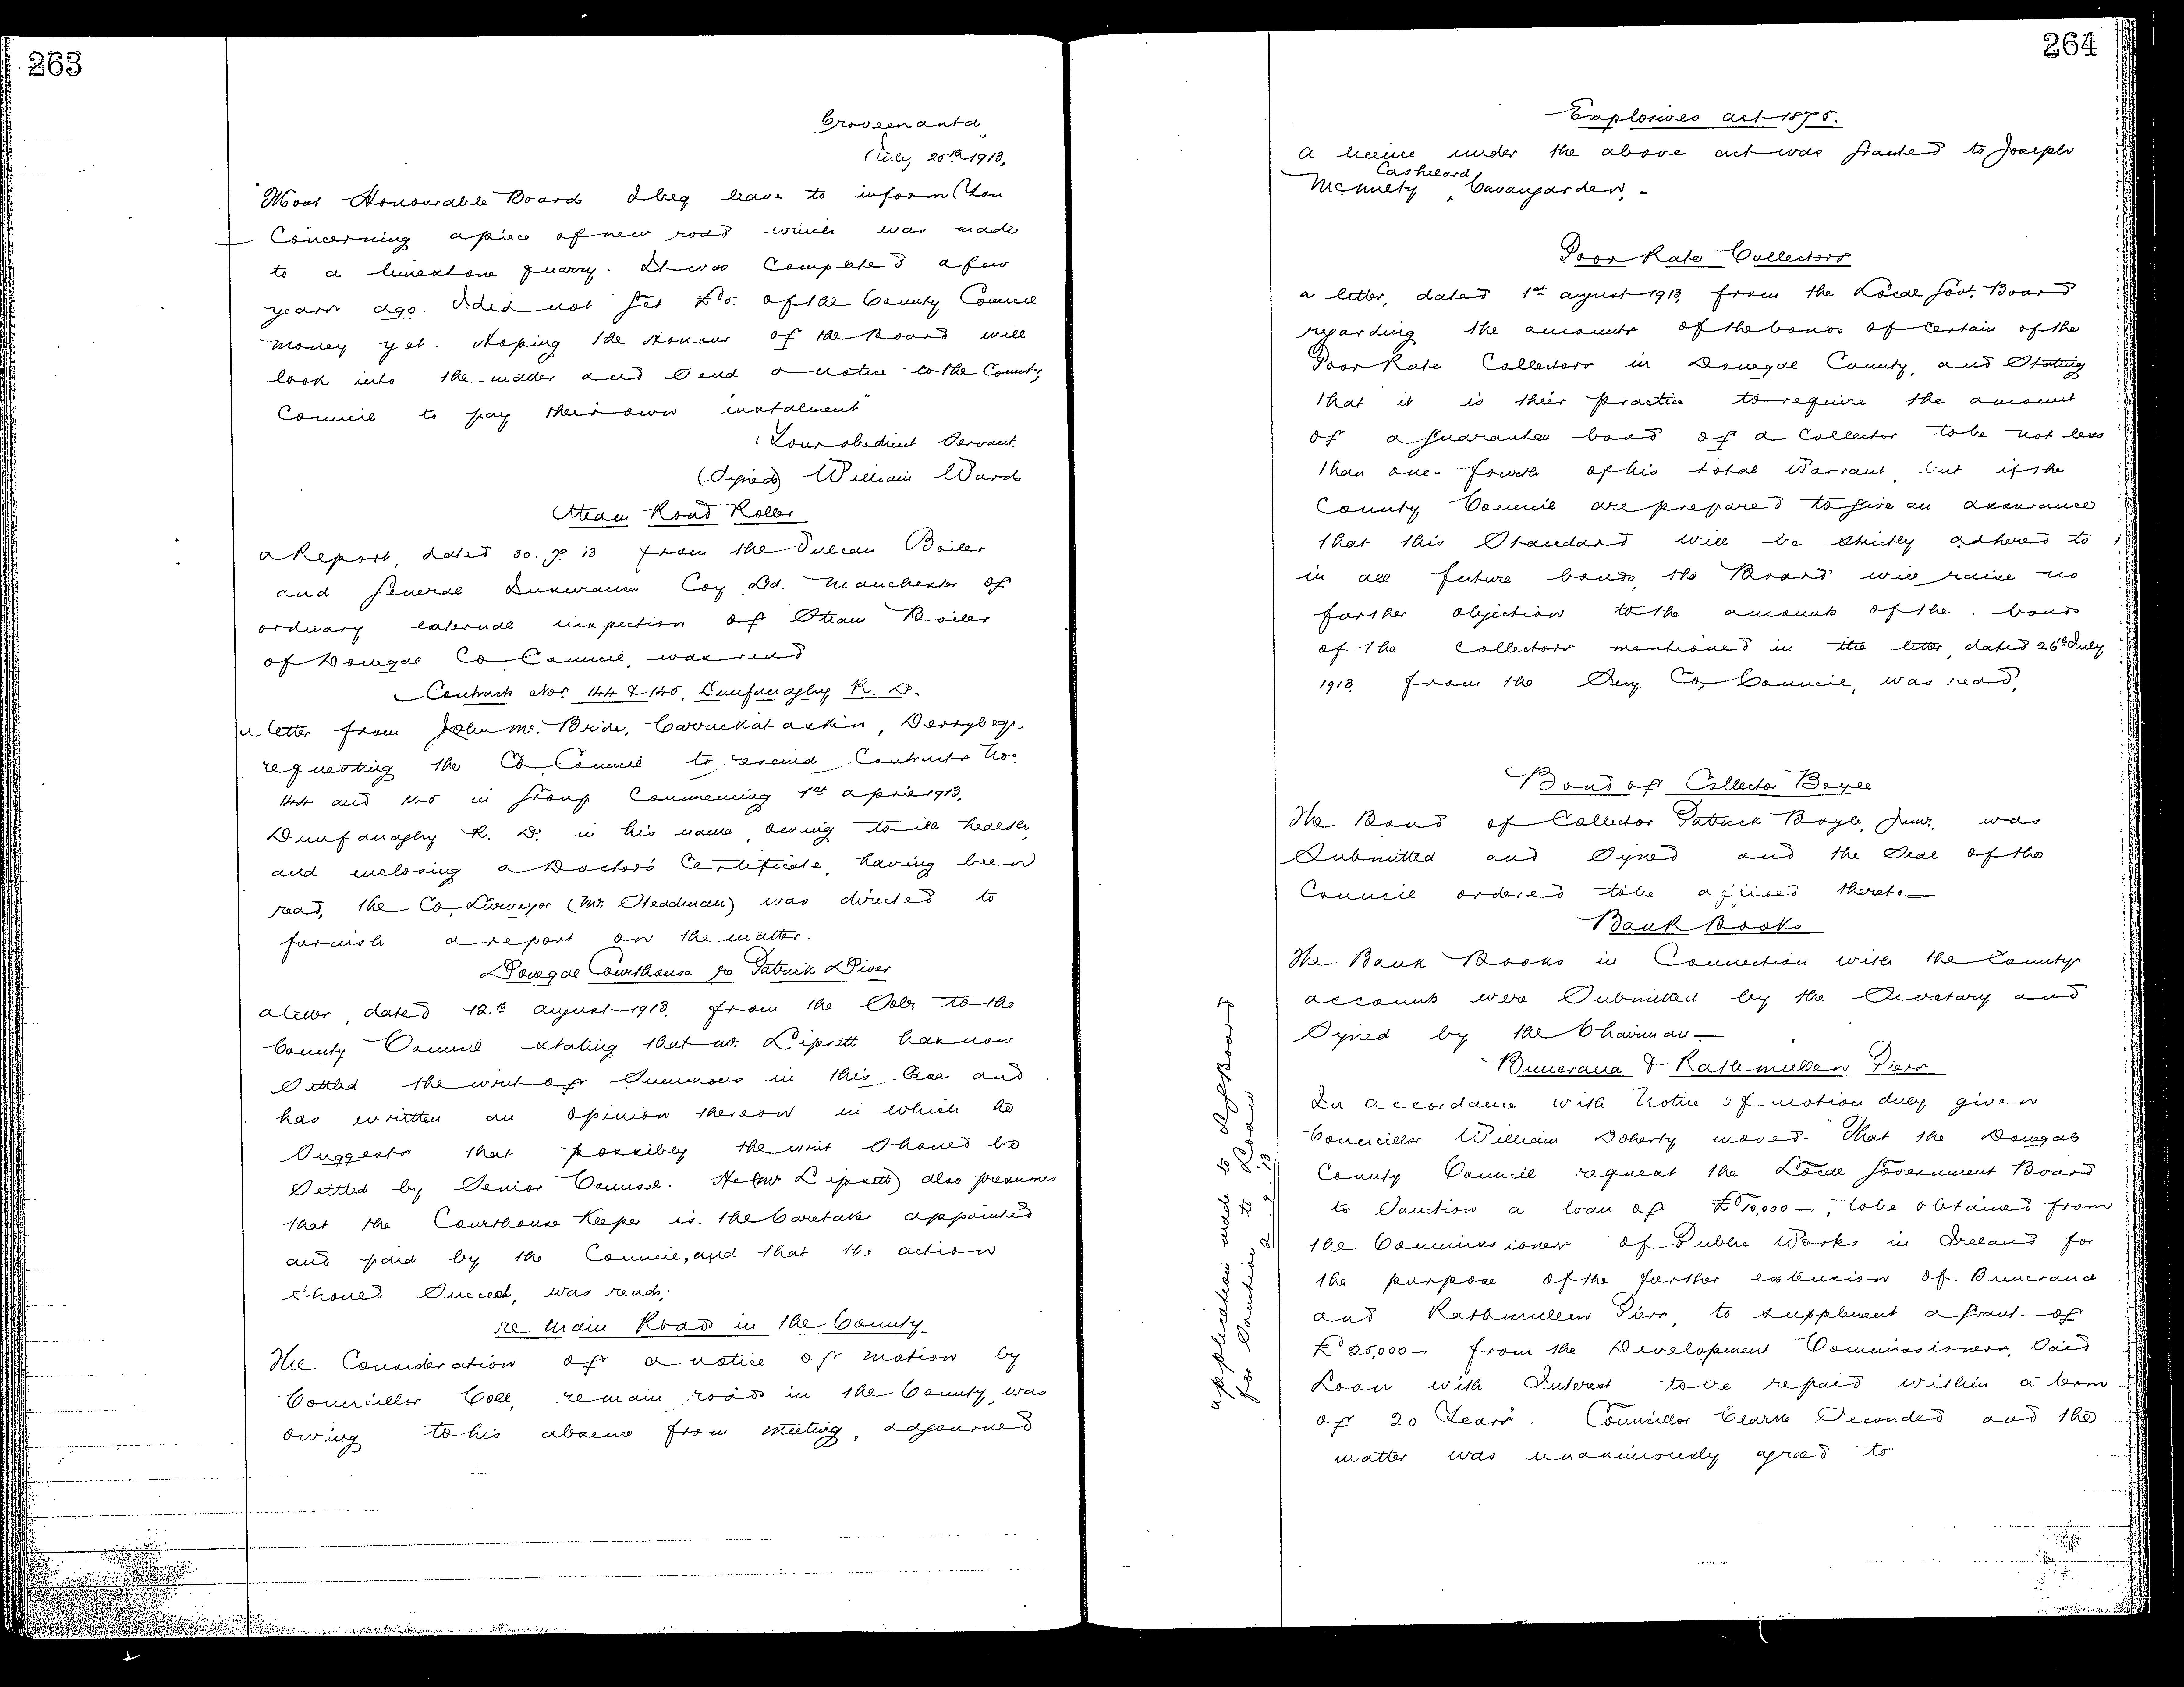 263
Croveenanta
July 25th 1913,
"Most Honourable Board I beg leave to inform You
Concerning a piece of new road which was made
to a limestone quarry. It was Completed a few
years ago. I did not get £5. of the County Council
money yet. Hoping the Honour of the Board will
look into the matter and Send a notice to the County
Council to pay their own instalment"
Your obedient Servant.
(Signed) William Ward
Steam Road Roller
a Report, dated 30. 7. 13 from the Vulcan Boiler
and General Insurance Coy Ld. Manchester of
ordinary external inspection of Steam Boiler
of Donegal Co. Council, was read
Contracts Nos. 144 & 145, Dunfanaghy R. D.
a letter from John Mc. Bride, Carrickataskin, Derrybeg,
requesting the Co. Council to rescind Contracts Nos.
144 and 145 in group Commencing 1st april 1913,
Dunfanaghy R. D. in his name, owing to ill health,
and enclosing a Doctor's Certificate, having been
read, the Co. Surveyor (Mr. Steadman) was directed to
furnish a report on the matter.
Donegal Courthouse re Patrick Diver
a letter, dated 12th august 1913, from the Solr. to the
County Council stating that Mr. Lipsett has now
Settled the writ of Summons in this Case and
has written an opinion thereon in which he
Suggests that possibly the writ Should be
Settled by Senior Counsel. He (Mr Lipsett) also presumes
that the Courthouse Keeper is the Caretaker appointed
and paid by the Council, and that the action
should Succeed, was read,
re Main Roads in the County
The Consideration of a notice of motion by
Councillor Coll, re main roads in the County, was
owing to his absence from meeting, adjourned
264
Explosives act 1875.
a licence under the above act was granted to Joseph
Cashelard
McNulty, Cavangarden, -
Poor Rate Collectors
a letter, dated 1st august 1913, from the Local Govt. Board
regarding the amounts of the bonds of Certain of the
Poor Rate Collectors in Donegal County, and Stating
that it is their practice to require the amount
of a guarantee bond of a Collector to be not less
than one-fourth of his total Warrant, but if the
County Council are prepared to give an assurance
that this Standard will be strictly adhered to
in all future bonds, the Board will raise no
further objection to the amounts of the bonds
of the Collectors mentioned in the letter, dated 26th July
1913, from the Secy. Co. Council, was read,
Bond of Collector Boyle
The Bond of Collector Patrick Boyle, Junr., was
Submitted and Signed and the Seal of the
Council ordered to be affixed thereto -
Bank Books
The Bank Books in Connection with the County
accounts were Submitted by the Secretary and
Signed by the Chairman -
Buncrana & Rathmullen Piers
In accordance with Notice of motion duly given
Councillor William Doherty moved - "That the Donegal
County Council request the Local Government Board
to Sanction a loan of £10,000 -, to be obtained from
the Commissioners of Public Works in Ireland for
the purpose of the further extension of Buncrana
and Rathmullen Piers, to supplement a grant of
£25,000 - from the Development Commissioners, Said
Loan with Interest to be repaid within a term
of 20 Years". Councillor Clarke Seconded and the
matter was unanimously agreed to
application made to L G Board
for Sanction to Loan
2. 9. 13